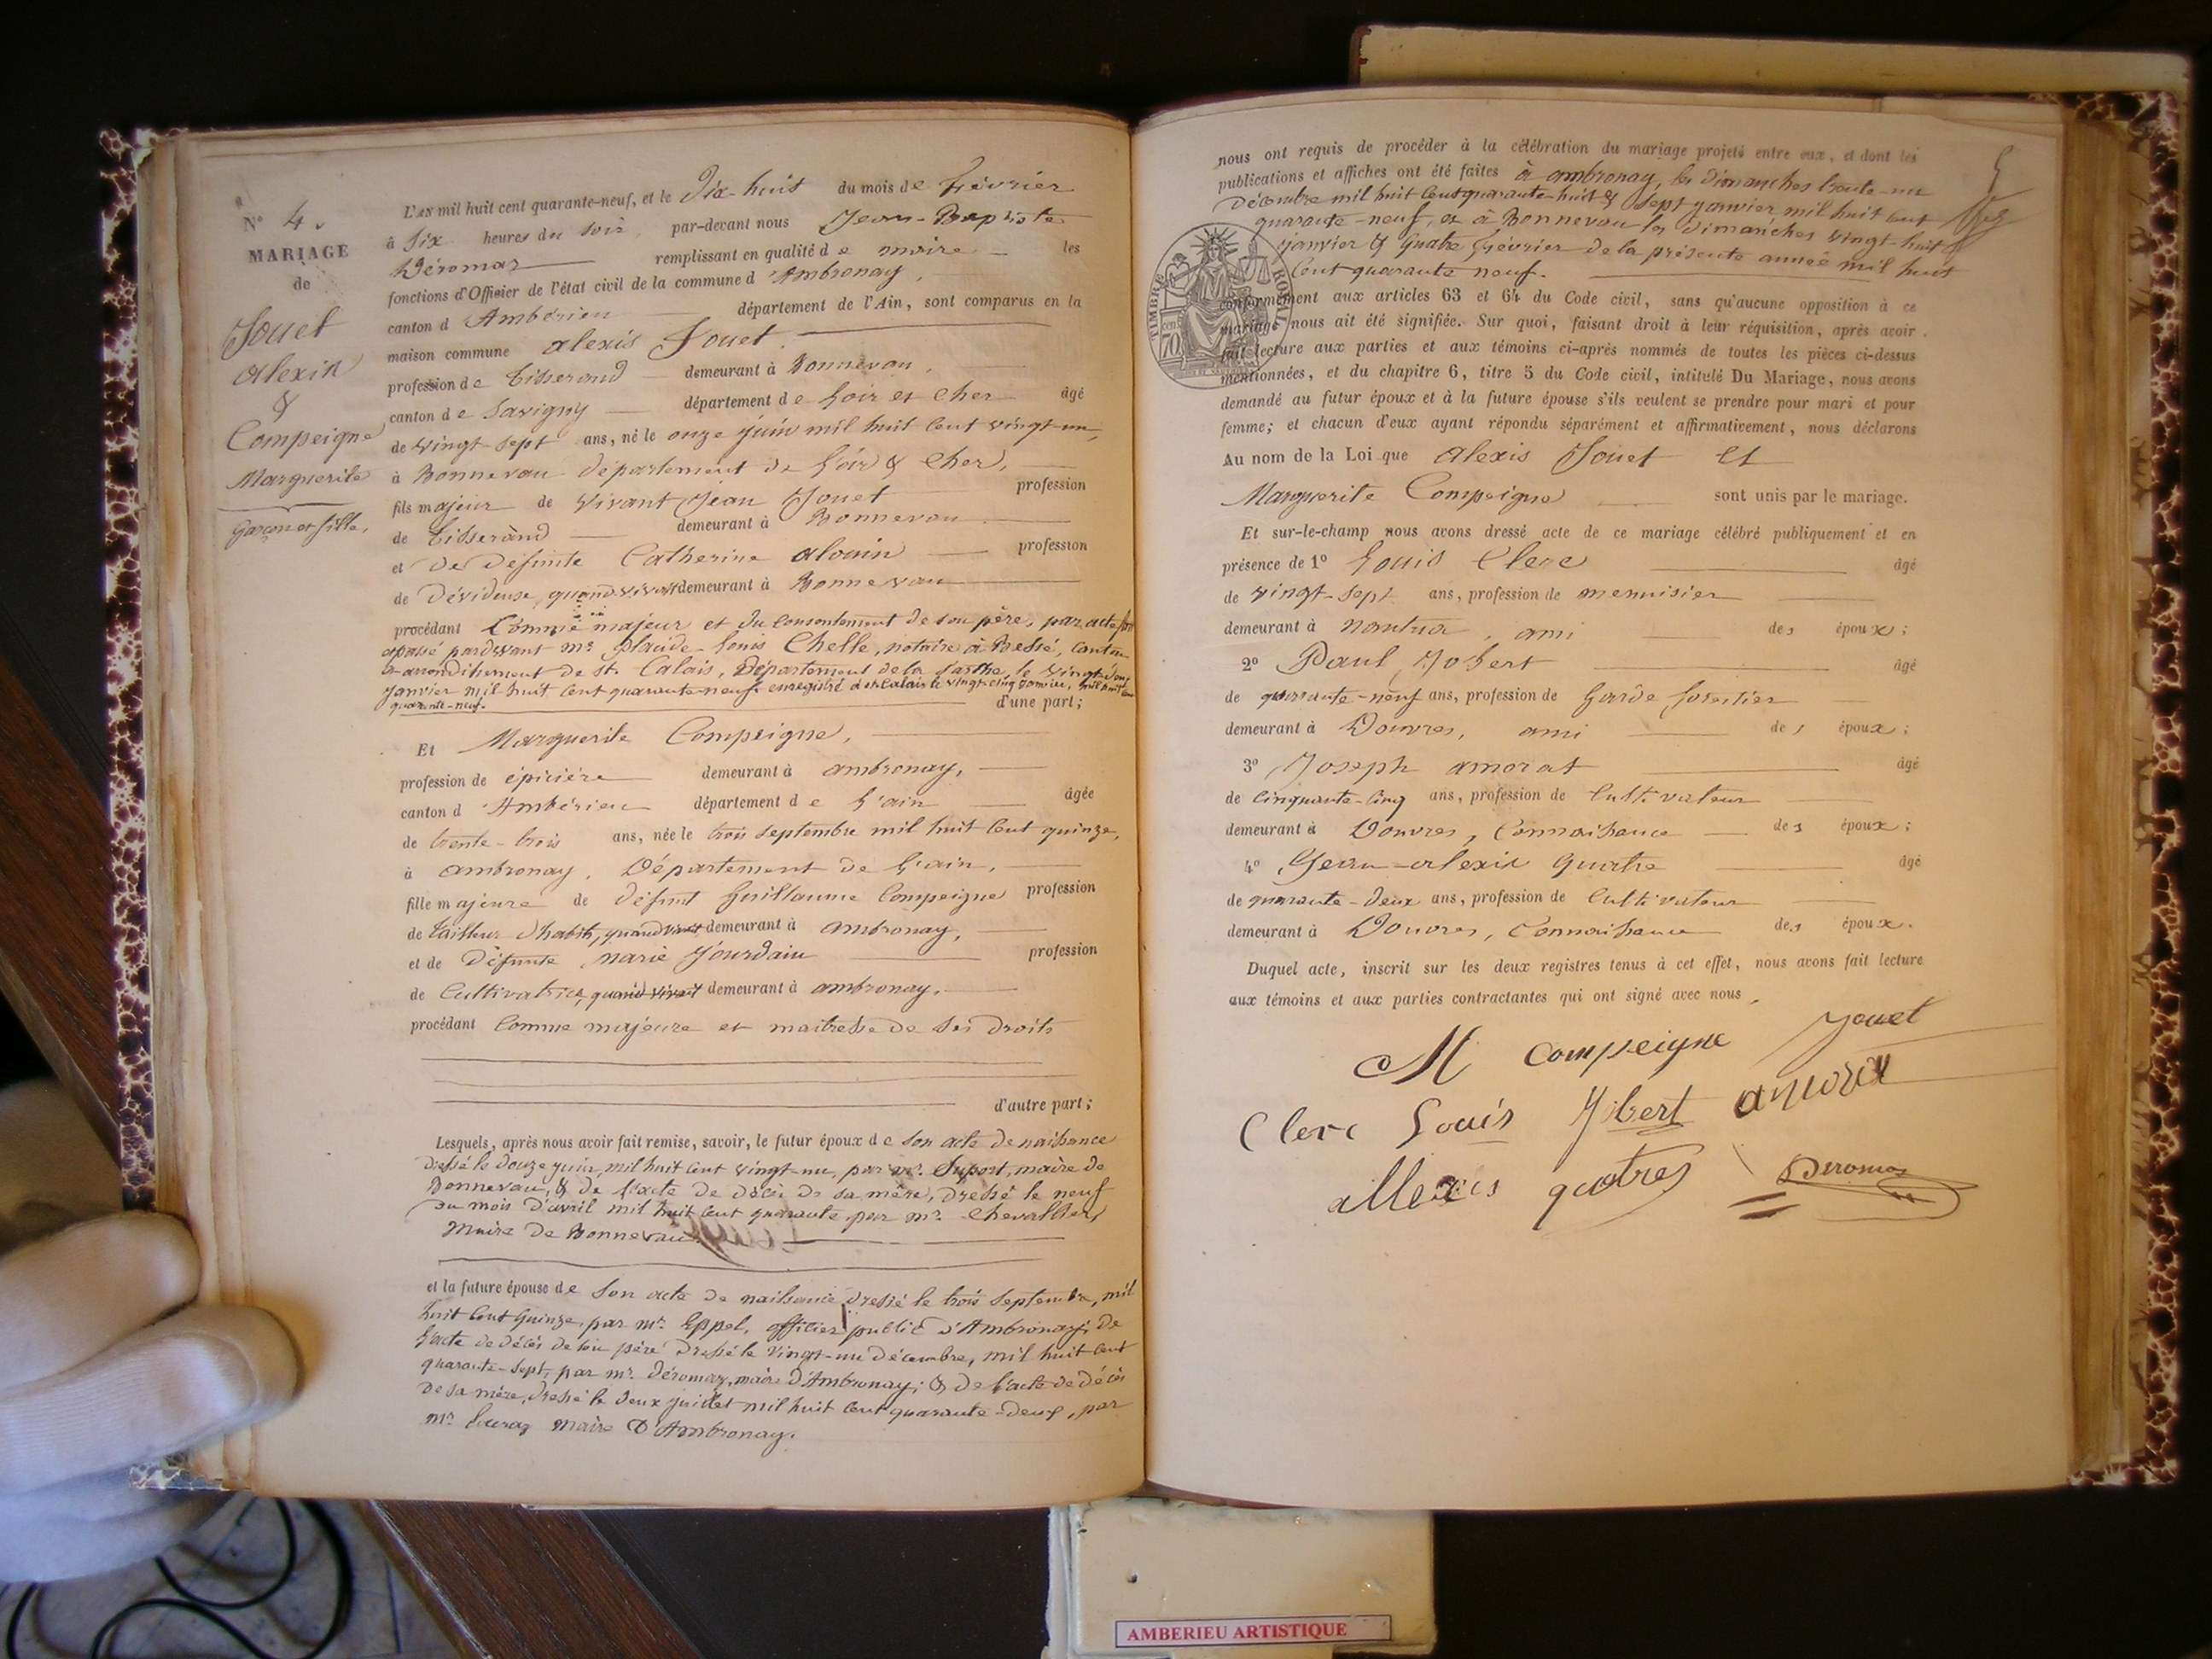 N° 4.
MARIAGE
de
Jouet
Alexis
&
Compeigne
Marguerite
Garçon et fille.
L'an mil huit cent quarante-neuf, et le Dix-huit du mois de février
à Six heures du soir, par-devant nous Jean-Baptiste
Déromas remplissant en qualité de maire les
fonctions d'Officier de l'état civil de la commune d'Ambronay,
canton d'Ambérieu département de l'Ain, sont comparus en la
maison commune alexis Jouet.
profession de tisserand demeurant à Bonnevau,
canton de Savigny département de Loir et Cher âgé
de vingt-sept ans, né le onze juin mil huit cent vingt-un,
à Bonnevau département de Loir & Cher,
fils majeur de vivant Jean Jouet profession
de tisserand demeurant à Bonnevau
et de Défunte Catherine alouin profession
de Dévideuse, quand vivait demeurant à Bonnevau
procédant Comme majeur et du consentement de son père, par acte
passé pardevant mr. placide-louis Chelle, notaire à Bessé, canton
& arrondissement de St. Calais, Département de la Sarthe, le vingt-deux
janvier mil huit cent quarante-neuf. enregistré à St. Calais le vingt-cinq janvier, mil huit cent
quarante-neuf. d'une part;
Et Marguerite Compeigne,
profession de épicière demeurant à ambronay,
canton d'Ambérieu département de l'ain âgée
de trente-trois ans, née le trois septembre mil huit cent quinze,
à ambronay, Département de l'ain,
fille majeure de défunt Guillaume Compeigne profession
de tailleur d'habits, quand vivait demeurant à ambronay,
et de Défunte marie Jourdain profession
de Cultivatrice, quand vivait demeurant à ambronay,
procédant Comme majeure et maitresse de ses droits
d'autre part;
Lesquels, après nous avoir fait remise, savoir, le futur époux de son acte de naissance
Dressé le douze juin, mil huit cent vingt-un, par mr. Suport, maire de
Bonnevau, & de l'acte de Décès de sa mère, Dressé le neuf
du mois d'avril mil huit cent quarante par mr. Chevallier,
Maire de Bonnevau.
et la future épouse de Son acte de naissance Dressé le trois septembre, mil
huit cent quinze, par mr. Eppel, officier public d'Ambronay; de
l'acte de décès de son père Dressé le vingt-un décembre, mil huit cent
quarante-sept, par mr. Déromas, maire d'Ambronay; & de l'acte de décès
de sa mère, dressé le deux juillet mil huit cent quarante-deux, par
mr. maire d'Ambronay.
nous ont requis de procéder à la célébration du mariage projeté entre eux, et dont les
publications et affiches ont été faites à ambronay, les dimanches trente-un
Décembre mil huit cent quarante-huit & sept janvier mil huit cent
quarante-neuf, et à Bonnevau les dimanches vingt-huit
janvier & quatre février de la présente année mil huit
cent quarante neuf.
TIMBRE ROYAL
70 cent
conformément aux articles 63 et 64 du Code civil, sans qu'aucune opposition à ce
mariage nous ait été signifiée. Sur quoi, faisant droit à leur réquisition, après avoir
fait lecture aux parties et aux témoins ci-après nommés de toutes les pièces ci-dessus
mentionnées, et du chapitre 6, titre 5 du Code civil, intitulé Du Mariage, nous avons
demandé au futur époux et à la future épouse s'ils veulent se prendre pour mari et pour
femme; et chacun d'eux ayant répondu séparément et affirmativement, nous déclarons
Au nom de la Loi que Alexis Jouet Et
Marguerite Compeigne sont unis par le mariage.
Et sur-le-champ nous avons dressé acte de ce mariage célébré publiquement et en
présence de 1° Louis Clerc âgé
de vingt-sept ans, profession de menuisier
demeurant à nantua, ami des époux;
2° Paul Jobert âgé
de quarante-neuf ans, profession de Garde forestier
demeurant à Douvres, ami des époux;
3° Joseph amorat âgé
de cinquante-cinq ans, profession de Cultivateur
demeurant à Douvres, Connaissance des époux;
4° Jean-alexis quatre âgé
de quarante-deux ans, profession de Cultivateur
demeurant à Douvres, Connaissance des époux.
Duquel acte, inscrit sur les deux registres tenus à cet effet, nous avons fait lecture
aux témoins et aux parties contractantes qui ont signé avec nous,
M compeigne Jouet
Clerc Louis Jobert amorat
allexis quatres Deromas
AMBERIEU ARTISTIQUE